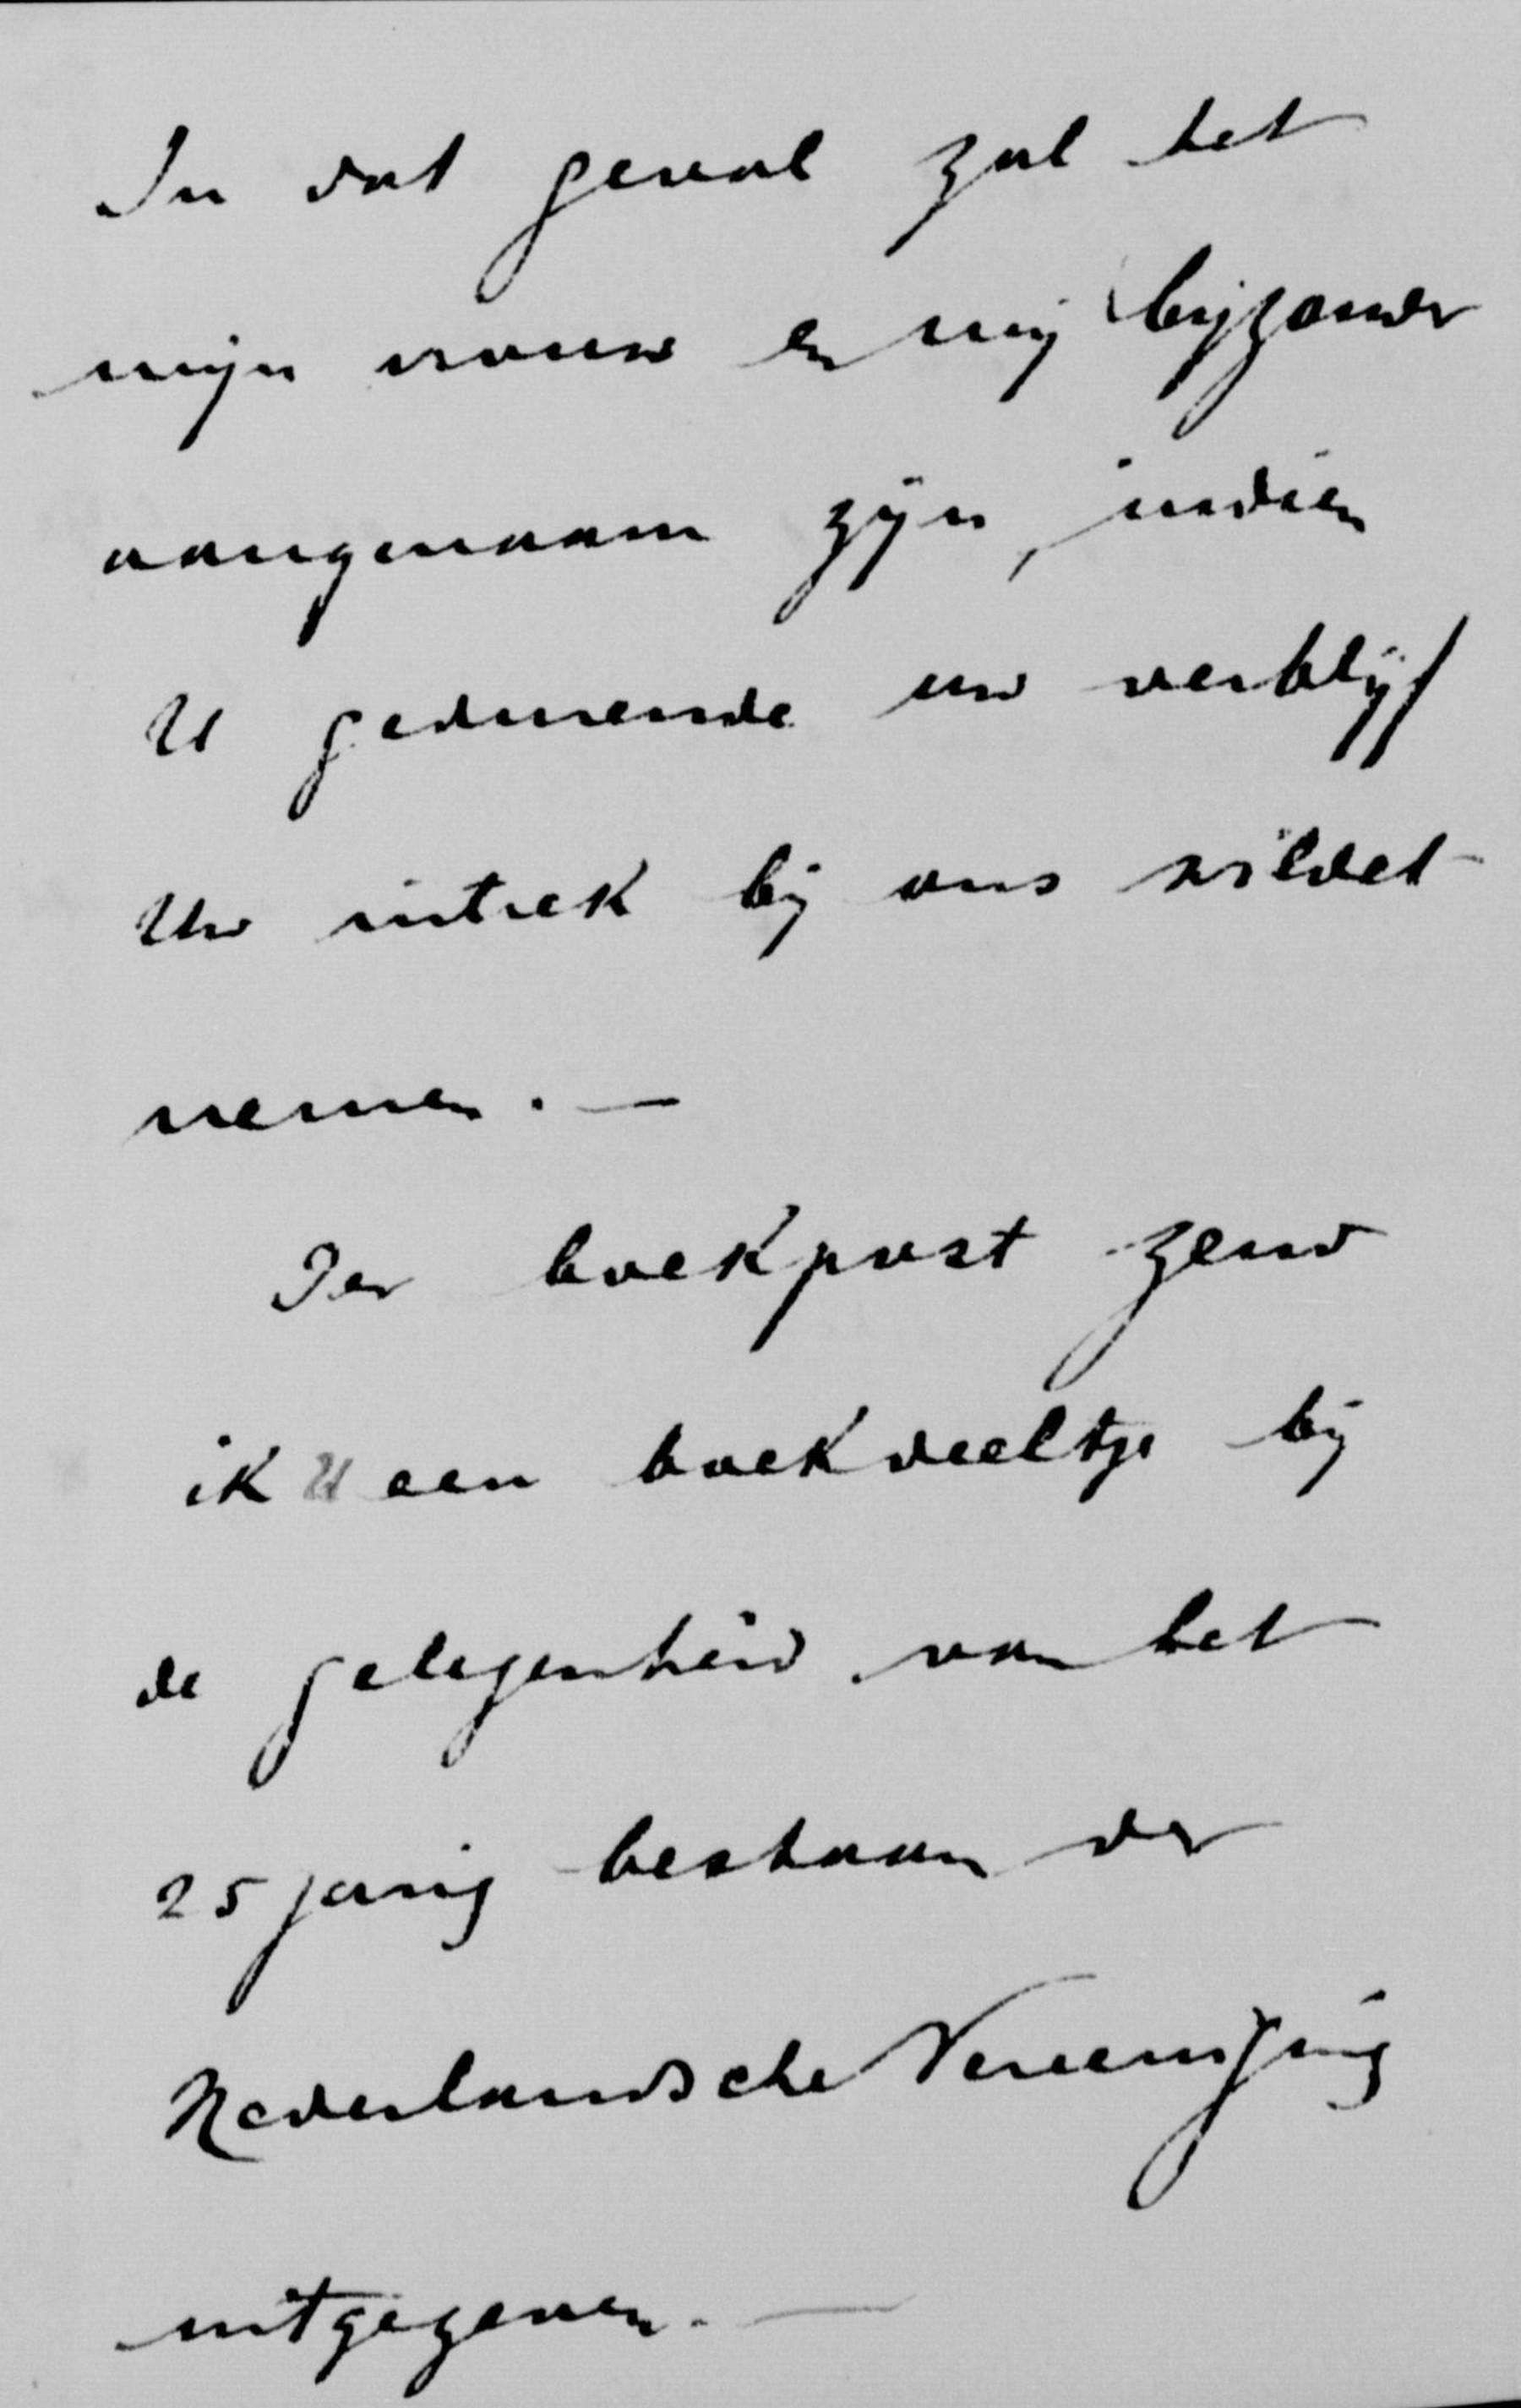 In dat geval zal het
mijn vrouw en mij bijzonder
aangenaam zijn, indien
U gedurende uw verblijf
Uw intrek bij ons wildet
nemen. —
Per boekpost zend
ik U een boekdeeltje bij
de gelegenheid van het
25 jarig bestaan der
Nederlandsche Vereeniging
uitgegeven. —